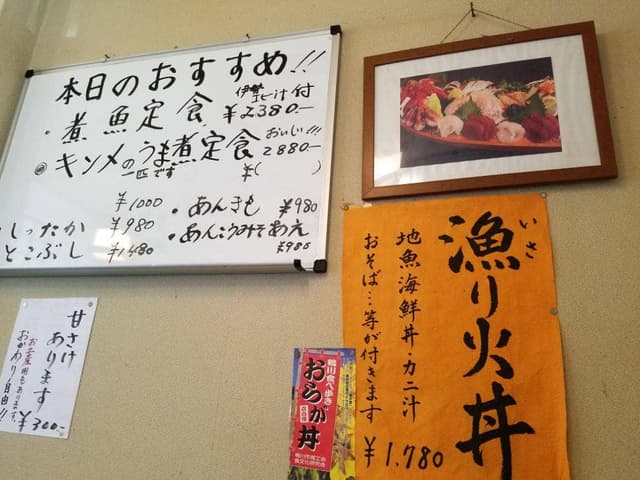 本日のおすすめ!!
・煮魚定食 伊勢エビ汁付 ¥2380-
◎キンメのうま煮定食 おいしい!!! 2880-
一匹です ¥( )
¥1000
・しったか ¥980
とこぶし ¥1480
・あんきも ¥980
・あんこうみそあえ
¥980
漁り火丼
いさ
地魚海鮮丼・カニ汁
おそば…等が付きます
¥1,780
甘さけ
あります
お土産用もあります。
おかわり自由!!
¥300-
鴨川食べ歩き
おらが丼
鴨川市商工会
食文化研究会